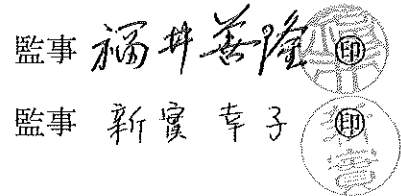 監事 福井善隆 ㊞
監事 新實幸子 ㊞